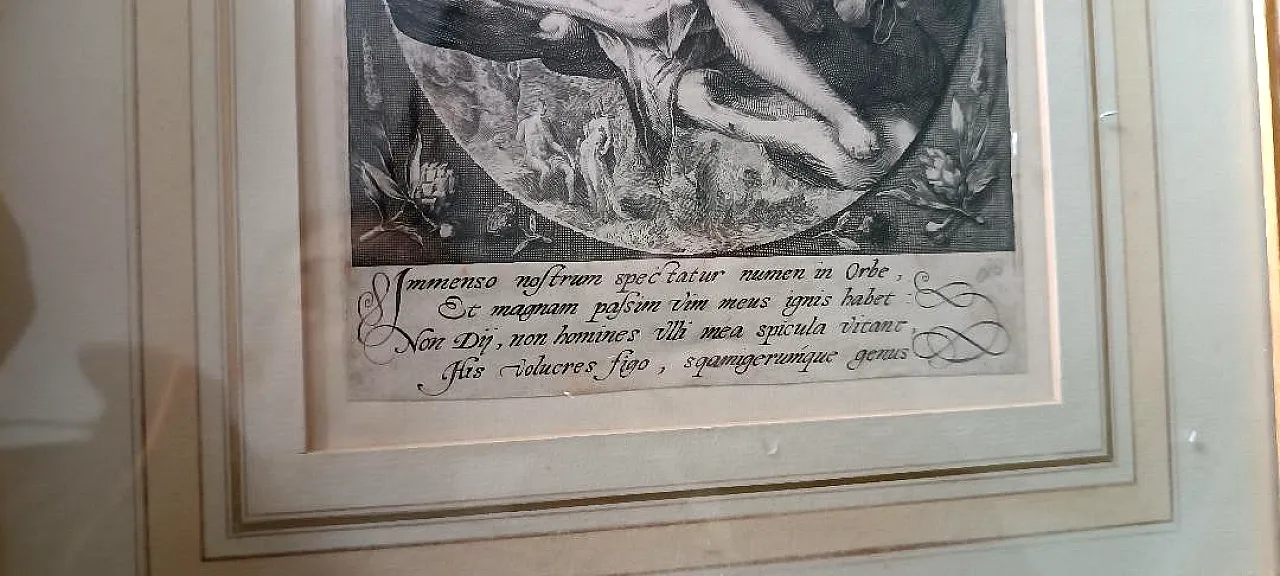 Immenso noſtrum spectatur numen in Orbe,
Et magnam paſsim vim meus ignis habet :
Non Dij, non homines vlli mea spicula vitant,
His volucres figo, sqamigerumque genus